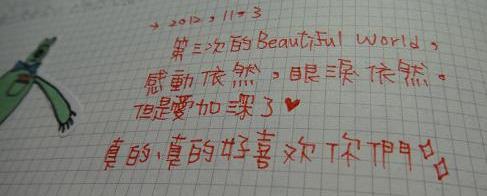 → 2012,11-3
第三次的Beautiful World,
感動依然,眼淚依然。
但是愛加深了♥
真的、真的好喜欢你們